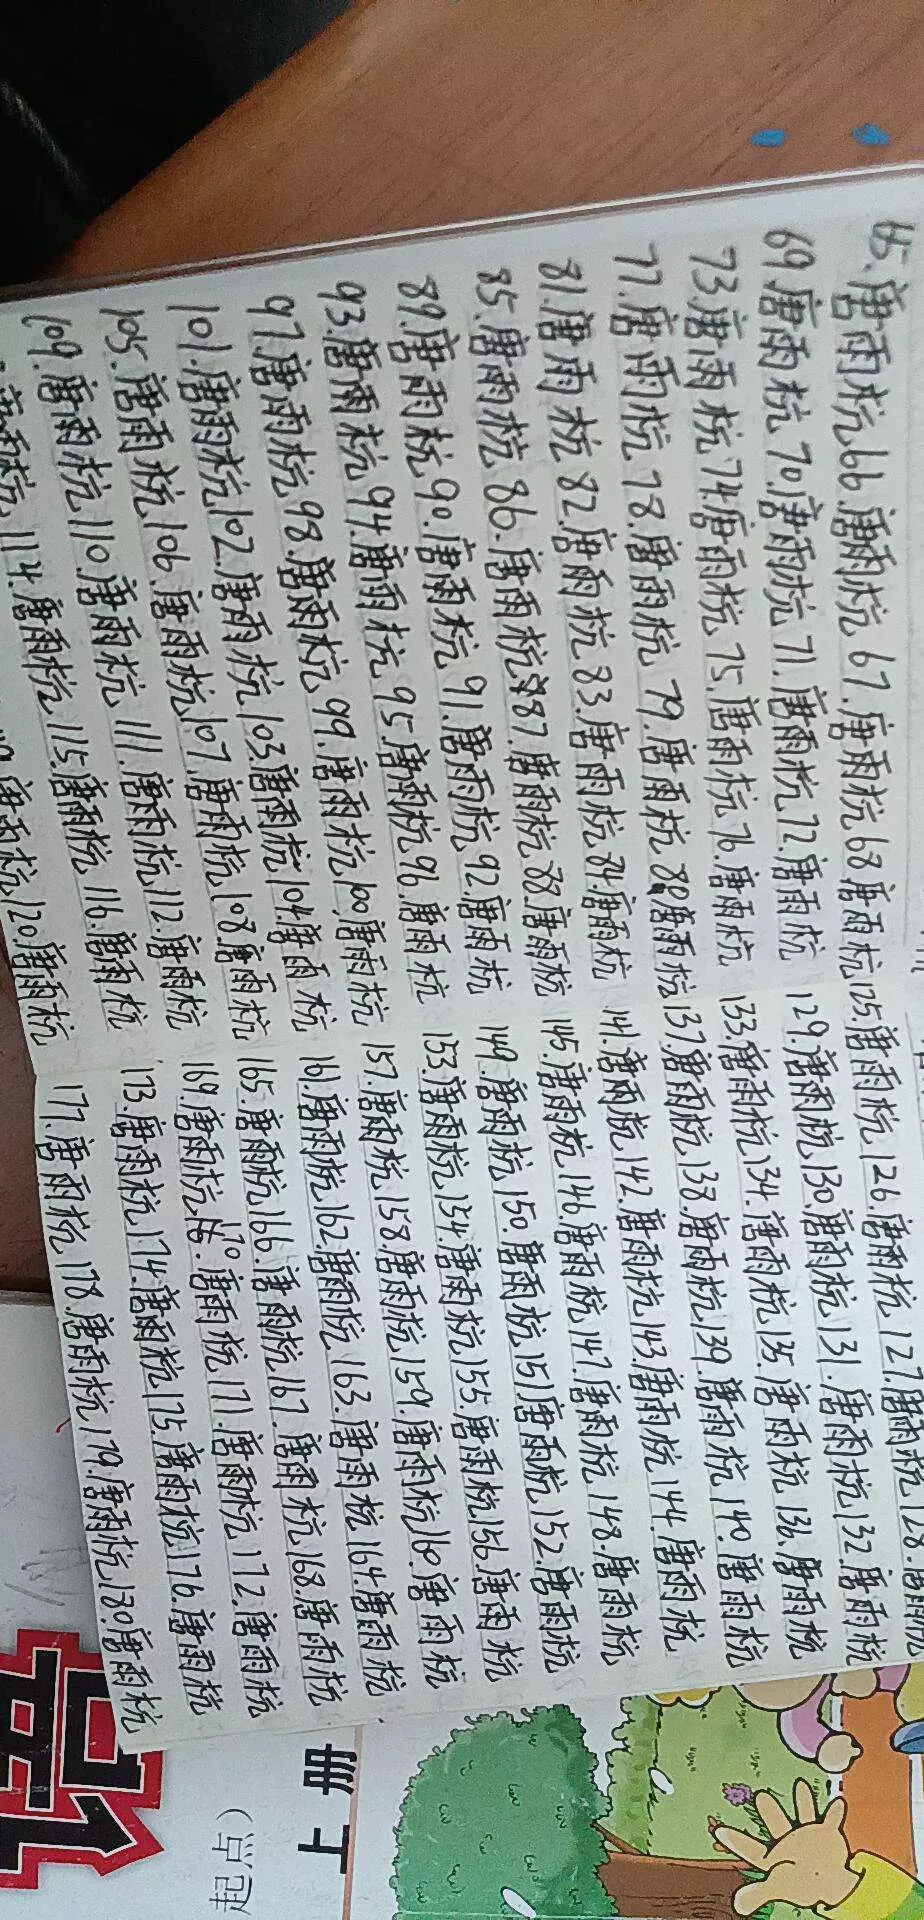 65.唐雨杭66.唐雨杭 67.唐雨杭68.唐雨杭
69.唐雨杭 70.唐雨杭 71.唐雨杭72.唐雨杭
73.唐雨杭74.唐雨杭 75.唐雨杭76.唐雨杭
77.唐雨杭 78.唐雨杭 79.唐雨杭80唐雨杭
81.唐雨杭 82.唐雨杭83.唐雨杭84.唐雨杭
85.唐雨杭 86.唐雨杭87.唐雨杭88.唐雨杭
89.唐雨杭90.唐雨杭 91.唐雨杭92.唐雨杭
93.唐雨杭94.唐雨杭95.唐雨杭96.唐雨杭
97.唐雨杭98.唐雨杭99.唐雨杭100唐雨杭
101.唐雨杭102.唐雨杭103.唐雨杭104.唐雨杭
105.唐雨杭106.唐雨杭107.唐雨杭108.唐雨杭
109.唐雨杭110.唐雨杭 111.唐雨杭112.唐雨杭
唐雨杭114.唐雨杭115.唐雨杭 116.唐雨杭
唐雨杭120唐雨杭
125.唐雨杭126.唐雨杭127.唐雨杭128.唐雨杭
129.唐雨杭130.唐雨杭131.唐雨杭132.唐雨杭
133.唐雨杭134.唐雨杭135.唐雨杭136.唐雨杭
137.唐雨杭138.唐雨杭139.唐雨杭140.唐雨杭
141.唐雨杭142.唐雨杭143.唐雨杭144.唐雨杭
145.唐雨杭146.唐雨杭147.唐雨杭148.唐雨杭
149.唐雨杭150.唐雨杭151唐雨杭152.唐雨杭
153.唐雨杭154.唐雨杭155.唐雨杭156.唐雨杭
157.唐雨杭158.唐雨杭159.唐雨杭160.唐雨杭
161.唐雨杭162.唐雨杭163.唐雨杭164.唐雨杭
165.唐雨杭166.唐雨杭167.唐雨杭168.唐雨杭
169.唐雨杭170.唐雨杭171.唐雨杭172.唐雨杭
173.唐雨杭174.唐雨杭175.唐雨杭176.唐雨杭
177.唐雨杭178.唐雨杭179.唐雨杭180.唐雨杭
上册
起点）